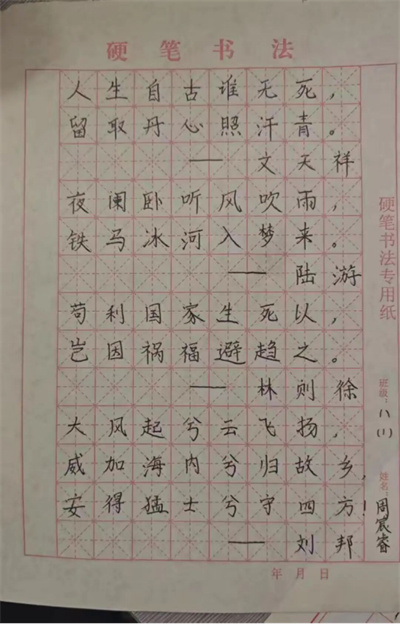 硬笔书法
人生自古谁无死，
留取丹心照汗青。
——文天祥
夜阑卧听风吹雨，
铁马冰河入梦来。
——陆游
苟利国家生死以，
岂因祸福避趋之。
——林则徐
大风起兮云飞扬，
威加海内兮归故乡，
安得猛士兮守四方！
——刘邦
年月日
硬笔书法专用纸
班级：八（1）
姓名：周